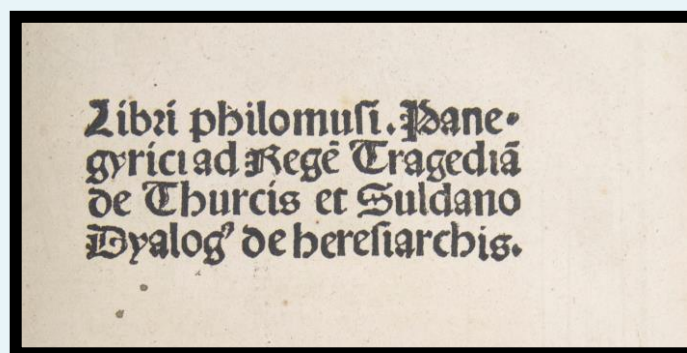 Libri philomuſi. Pane-
gyrici ad Regē Tragediā
de Thurcis et Suldano
Dyalogꝰ de hereſiarchis.